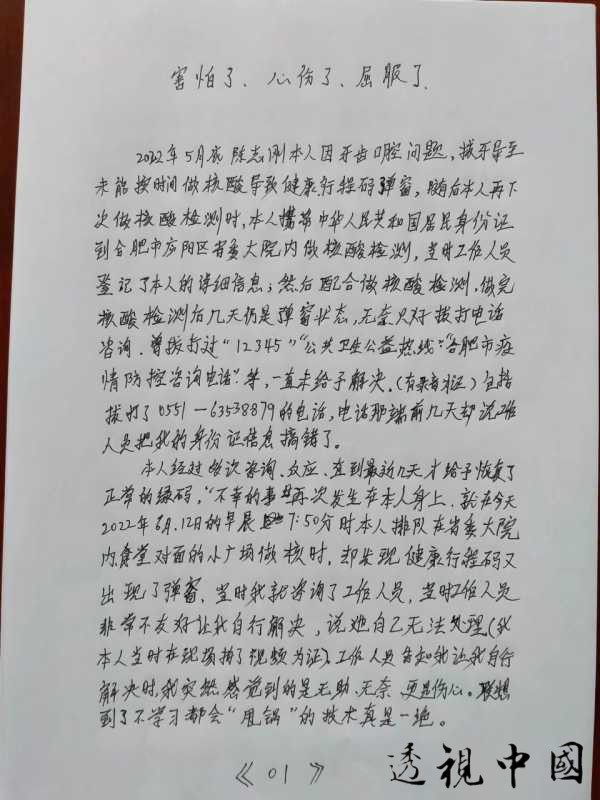 害怕了、心伤了、屈服了.
2022年5月底陈志刚本人因牙齿口腔问题,拔牙导至
未能按时间做核酸导致健康行程码弹窗,随后本人再下
次做核酸检测时,本人携带中华人民共和国居民身份证
到合肥市庐阳区省委大院内做核酸检测,当时工作人员
登记了本人的详细信息;然后配合做核酸检测,做完
核酸检测后几天仍是弹窗状态,无奈只好拨打电话
咨询.曾拨打过"12345""公共卫生公益热线""合肥市疫
情防控咨询电话"等,一直未给予解决.(有录音为证)包括
拨打了0551—63538879的电话,电话那端前几天却说工作
人员把我的身份证信息搞错了。
本人经过多次咨询、反应、直到最近几天才给予恢复了
正常的绿码,"不幸的事再次发生在本人身上.就在今天
2022年6月.12日的早晨7:50分时本人排队在省委大院
内食堂对面的小广场做核时,却发现健康行程码又
出现了弹窗、当时我就咨询了工作人员,当时工作人员
非常不友好让我自行解决,说她自己无法处理(我
本人当时在现场拍了视频为证).工作人员告知我让我自行
解决时,我突然感觉到的是无助、无奈、更是伤心。联想
到了不学习都会"甩锅"的技术真是一绝。
《01》
透視中國